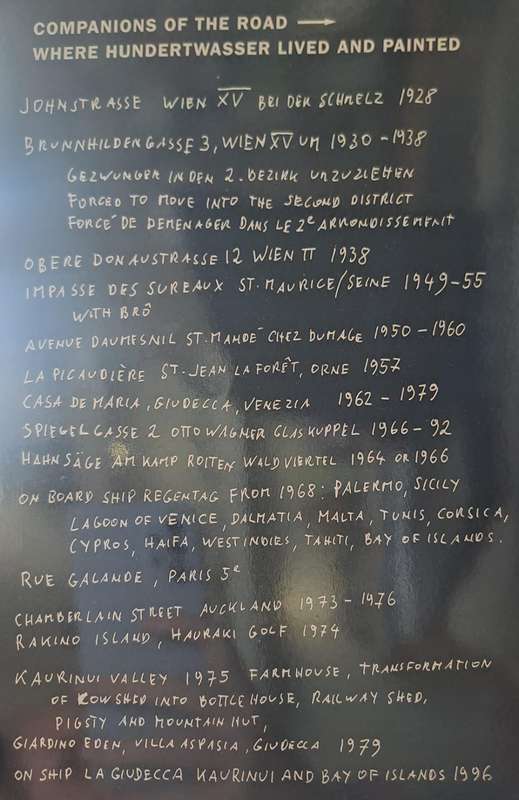 COMPANIONS OF THE ROAD →
WHERE HUNDERTWASSER LIVED AND PAINTED
JOHNSTRASSE WIEN XV BEI DER SCHMELZ 1928
BRUNNHILDENGASSE 3, WIEN XV UM 1930-1938
GEZWUNGEN IN DEN 2. BEZIRK UMZUZIEHEN
FORCED TO MOVE INTO THE SECOND DISTRICT
FORCÉ DE DEMENAGER DANS LE 2e ARRONDISSEMENT
OBERE DONAUSTRASSE 12 WIEN II 1938
IMPASSE DES SUREAUX ST. MAURICE/SEINE 1949-55
WITH BRÔ
AVENUE DAUMESNIL ST. MANDÉ CHEZ DUMAGE 1950-1960
LA PICAUDIÈRE ST. JEAN LA FORÊT, ORNE 1957
CASA DE MARIA, GIUDECCA, VENEZIA 1962-1979
SPIEGELGASSE 2 OTTO WAGNER GLASKUPPEL 1966-92
HAHNSÄGE AM KAMP ROITEN WALDVIERTEL 1964 OR 1966
ON BOARD SHIP REGENTAG FROM 1968: PALERMO, SICILY
LAGOON OF VENICE, DALMATIA, MALTA, TUNIS, CORSICA,
CYPROS, HAIFA, WESTINDIES, TAHITI, BAY OF ISLANDS.
RUE GALANDE, PARIS 5e
CHAMBERLAIN STREET AUCKLAND 1973-1976
RAKINO ISLAND, HAURAKI GOLF 1974
KAURINUI VALLEY 1975 FARMHOUSE, TRANSFORMATION
OF COWSHED INTO BOTTLEHOUSE, RAILWAY SHED,
PIGSTY AND MOUNTAIN HUT,
GIARDINO EDEN, VILLA ASPASIA, GIUDECCA 1979
ON SHIP LA GIUDECCA KAURINUI AND BAY OF ISLANDS 1996